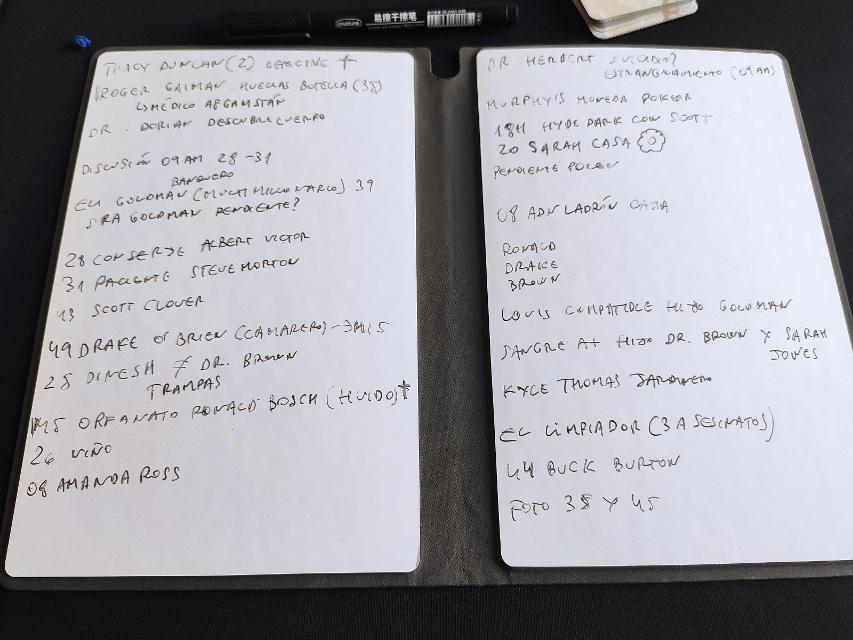 易擦干擦笔
TRACY DUNCAN (2) DETECTIVE †
ROGER GAIMAN. HUELLAS BOTELLA (38)
↳ MÉDICO AFGANSTÁN
DR. DORIAN DESCUBRE CUERPO
DISCUSIÓN 09 AM 28-31
BANQUERO
ELI GOLDMAN (MULTIMILLONARIO) 39
SRA GOLDMAN PENDIENTE?
28 CONSERJE ALBERT VICTOR
31 PACIENTE STEVE MORTON
43 SCOTT CLOVER
49 DRAKE O'BRIEN (CAMARERO) - 3M15
25 DINESH ≠ DR. BROWN
TRAMPAS
M5 ORFANATO RONALD BOSCH (HUIDO) †
26 NIÑO
08 AMANDA ROSS
DR HERBERT SUICIDIO?
ESTRANGULAMIENTO (09 AM)
MURPHY'S MONEDA POKER
18H HYDE PARK CON SCOTT
20 SARAH CASA
PENDIENTE POLEN
08 ADN LADRÓN CAJA
RONALD
DRAKE
BROWN
LOUIS COMPATIBLE HIJO GOLDMAN
SANGRE A+ HIJO DR. BROWN Y SARAH
JONES
KYLE THOMAS JARDINERO
EL LIMPIADOR (3 ASESINATOS)
44 BUCK BURTON
FOTO 38 Y 45